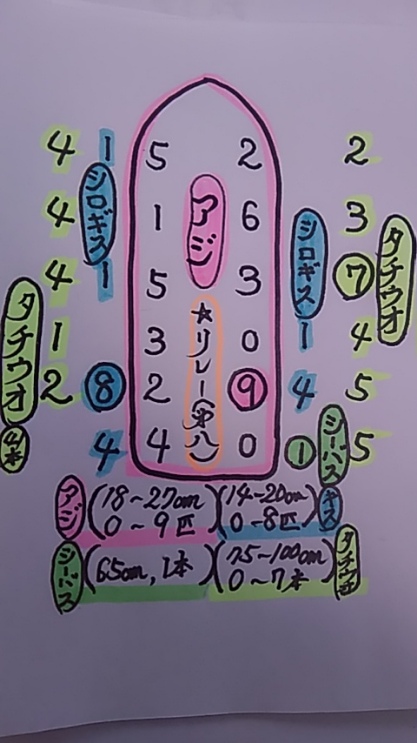 4 1 5 2 2
4 シロギス 1 アジ 6 シロギス 3 タチウオ
4 1 5 3 7
タチウオ 1 3 ☆リレー(第八) 0 1 4
2 8 2 9 4 5
4 4 0 1 シーバス 5
アジ (18~27cm 0~9匹) (14~20cm 0~8匹) キス
シーバス (65cm, 1本) (75~100cm 0~7本) タチウオ